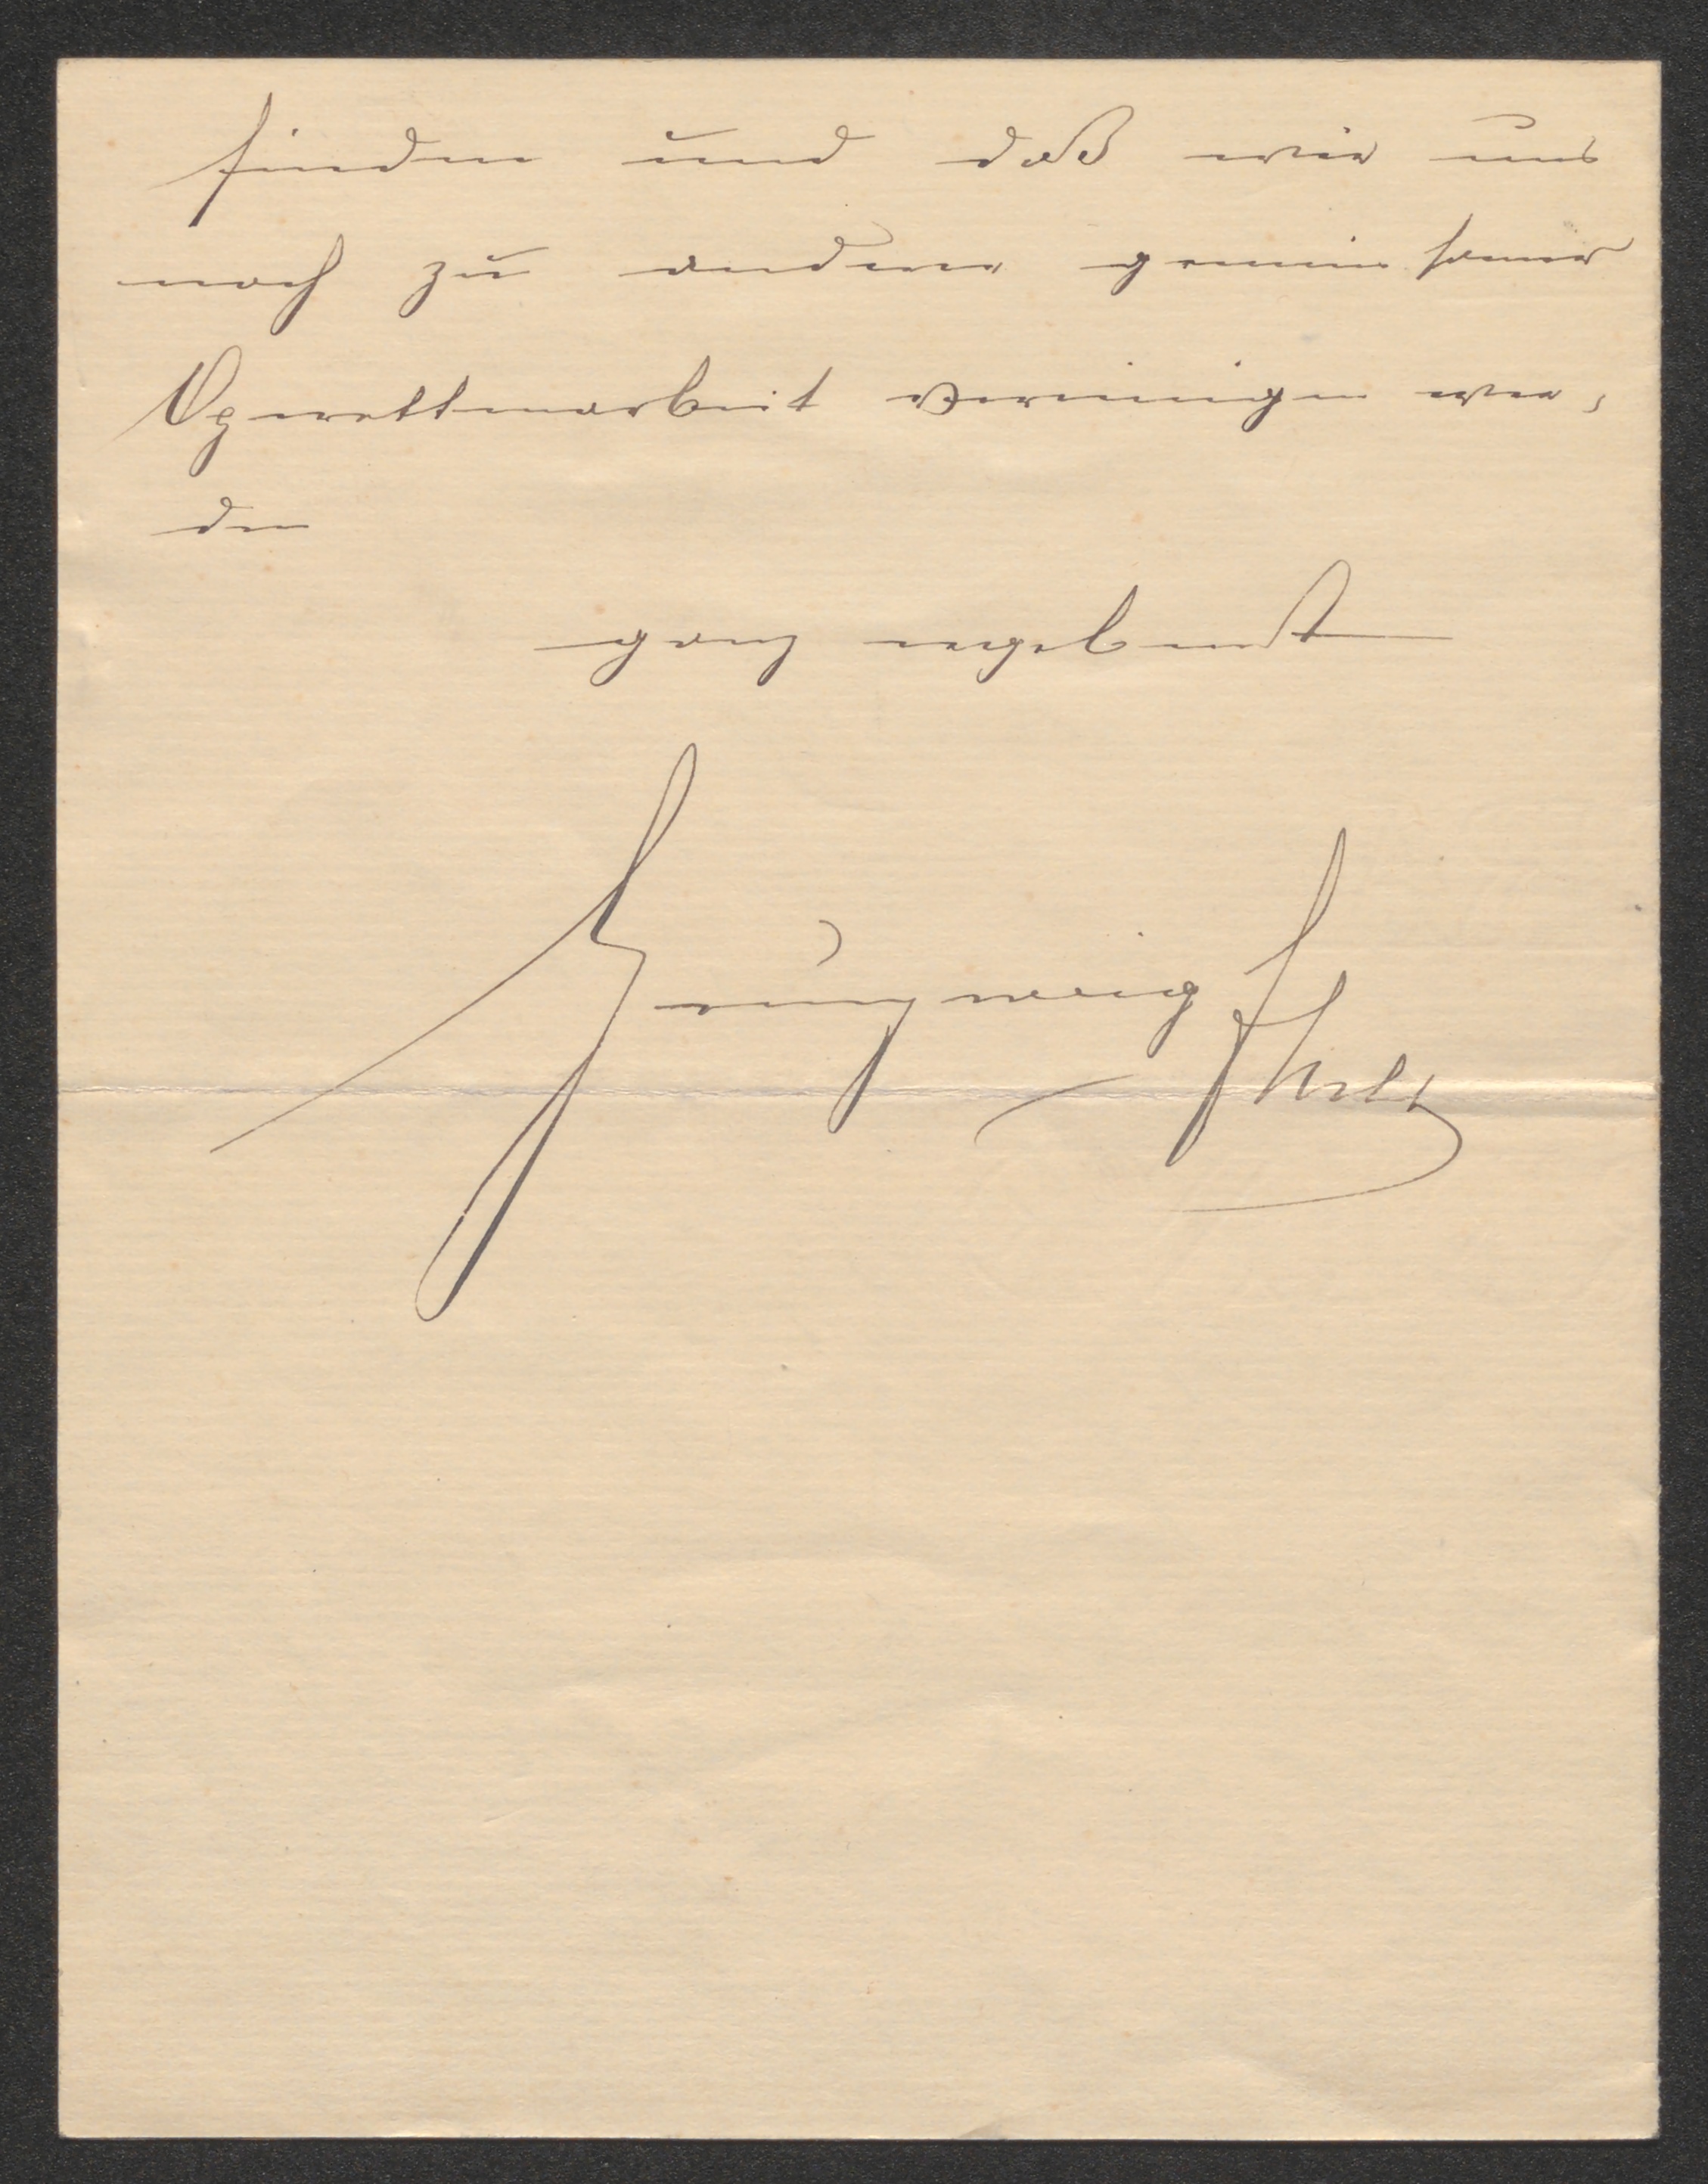 finden und daß wir uns
noch zu anderer gemeinsamer
Operettenarbeit vereinigen wer-
den
ganz ergebenst